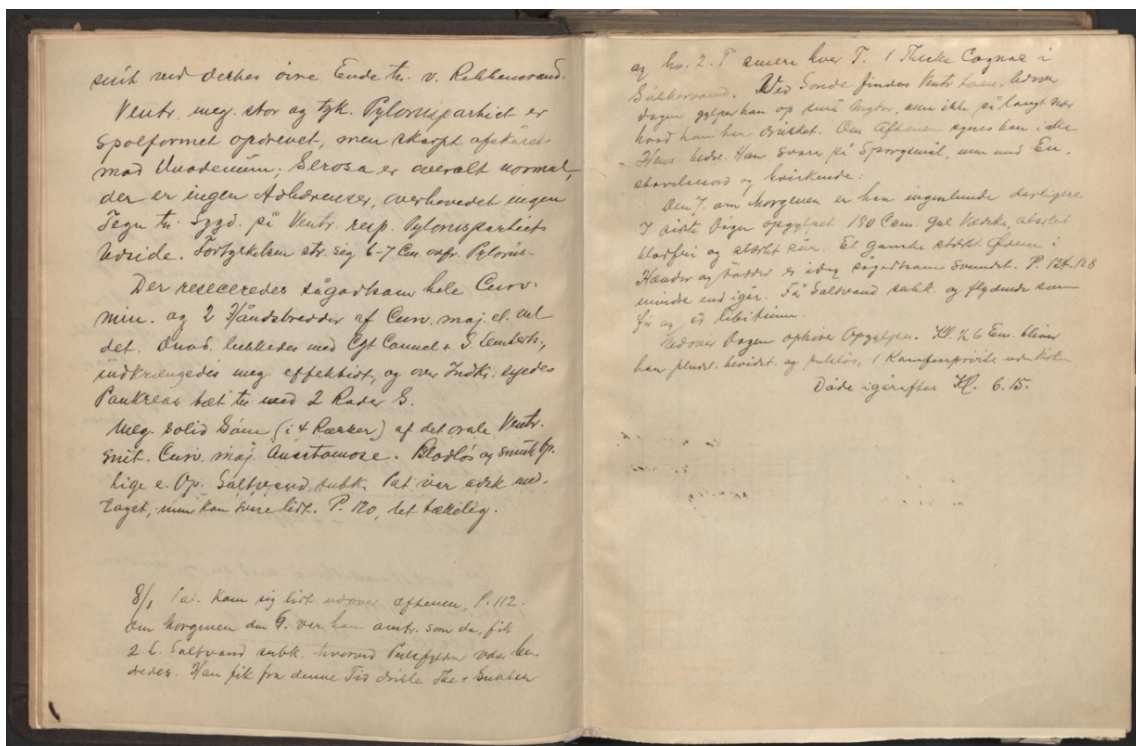 snit ved dettes øvre Ende th. v. Ribbensrand.
Ventr. meg. stor og tyk. Pyloruspartiet er
spolformet opdrevet, men skarpt afskåret
mod Duodenum; Serosa er overalt normal,
der er ingen Adhærenser, overhovedet ingen
Tegn th. Sygd. på Ventr. resp. Pylorusparties
Udside. Fortykkelsen str. sig 6-7 Cm ovfr. Pylorus.
Der reseceredes sågodtsom hele Curv.
min. og 2 Håndsbredder af Curv. maj. el. vel
det. Duod. lukkedes med Cgt Connel + S. Lemberts,
indkrængedes meg. effektivt, og over Indkr. syedes
Pankreas tæt til med 2 Rader S.
Meg. solid Søm (i 4 Rækker) af det orale Ventr.
snit. Curv. maj. Anastomose. Blodløs og smuk Op.
lige e. Op. Saltvand subk. Pat. var med-
taget, men kan svare lidt. P. 120, let tællelig.
8/1 Pat. kom sig lidt udover aftenen, P. 112.
Om Morgenen den 9. var han omtr. som da, fik
2 Saltvand subk. hvorved Pulsfylden var be-
dredes. Han fik fra denne Tid drikke The +
og hv. 2. T senere hver T. 1 Theske Cognac i
Sukkervand. Ved Sonde findes Ventr tom. Udover
dagen gylper han op små Mgdr, men ikke på langt nær
hvad han har drukket. Om Aftenen synes han i alle
Hens. bedre. Han svarer på Spørgsmål, men med En-
stavelsesord og hviskende.
Den om Morgenen er han ingenlunde dårligere
I sidste Døgn opgylpet 150 Ccm. gul Vædske, absolut
blodfri og stærkt sur. Et gamle stærkt Ødem i
Hænder og Fødder er idag sågodtsom svundet. P. 124-128
mindre end igår. Få Saltvand subk. og flydende som
før og ad libitum.
Udover Dagen ophører Opgylpen. Kl. 6 Em. bliver
han pludsl. bevidstl. og pulsløs, 1 Kamferprøvite uden
Døde igårafter Kl. 6.15.